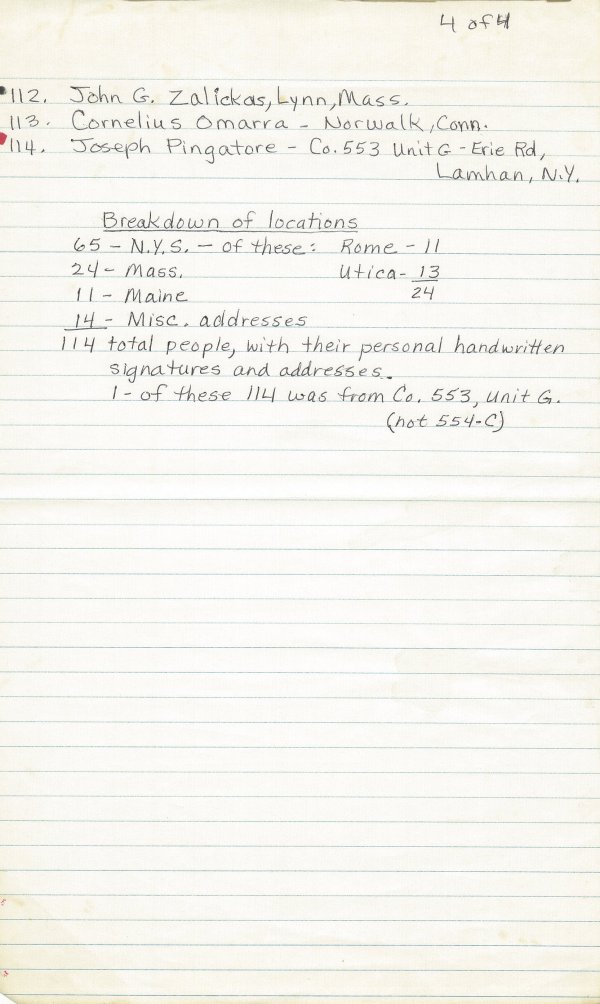 4 of 4
112. John G. Zalickas, Lynn, Mass.
113. Cornelius Omarra - Norwalk, Conn.
114. Joseph Pingatore - Co. 553 Unit G - Erie Rd,
Lamhan, N.Y.
Breakdown of locations
65 - N.Y.S. - of these: Rome - 11
24 - Mass. Utica - 13
11 - Maine 24
14 - Misc. addresses
114 total people, with their personal handwritten
signatures and addresses.
1 - of these 114 was from Co. 553, Unit G.
(not 554-C)